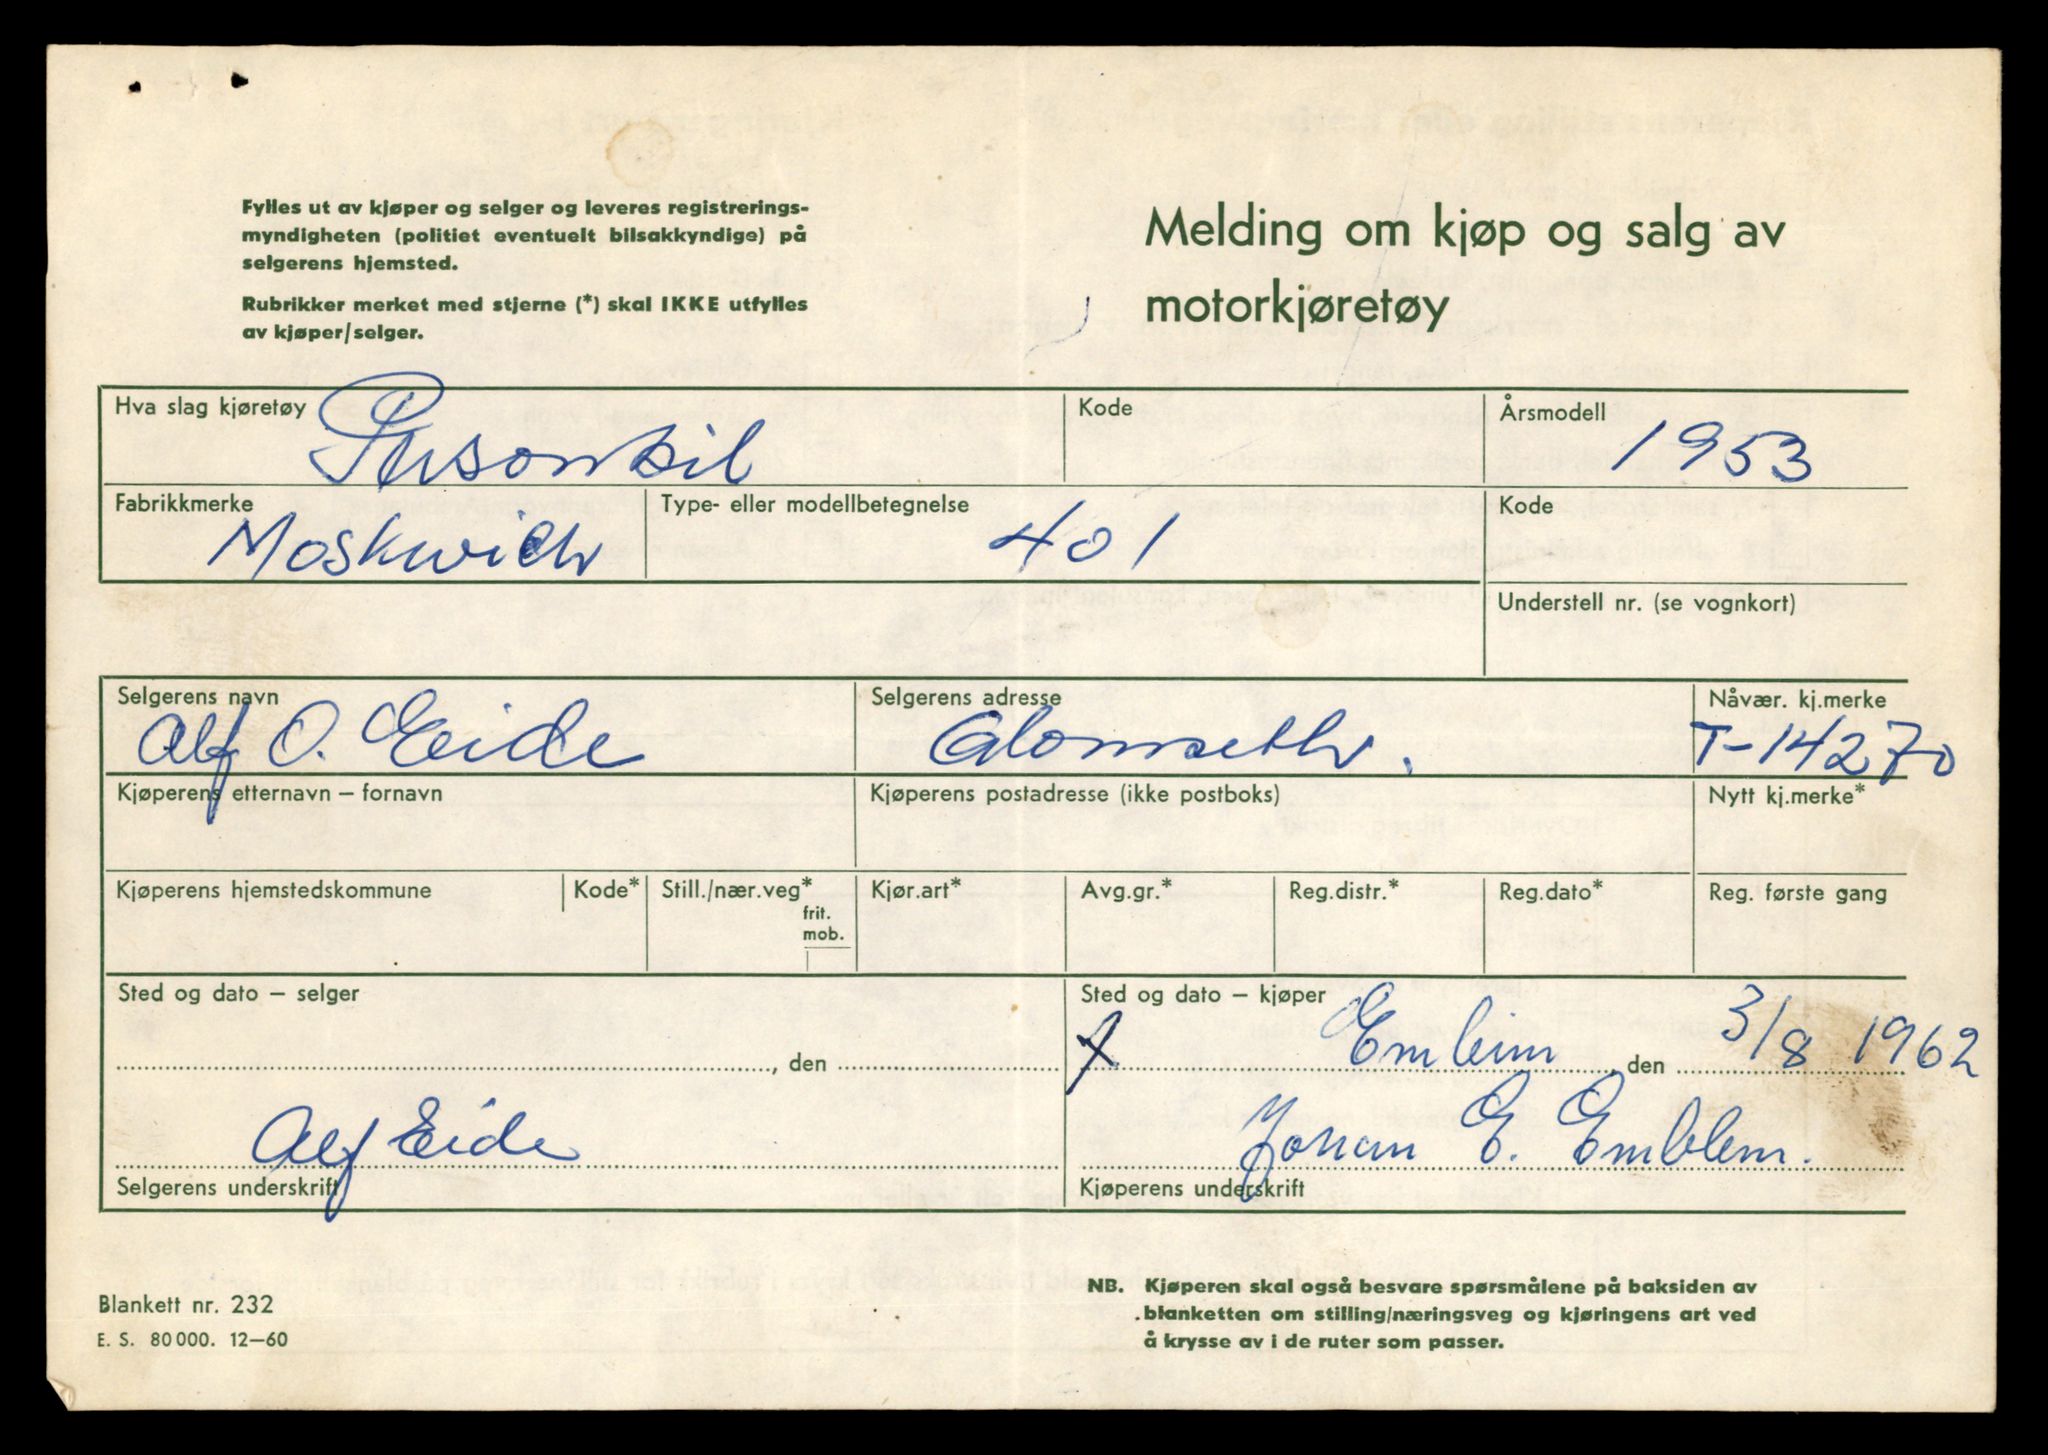 Fylles ut av kjøper og selger og leveres registrerings-
myndigheten (politiet eventuelt bilsakkyndige) på
selgerens hjemsted.
Rubrikker merket med stjerne (*) skal IKKE utfylles
av kjøper/selger.
Melding om kjøp og salg av
motorkjøretøy
Hva slag kjøretøy Personbil
Kode
Årsmodell 1953
Fabrikkmerke Moskwich
Type- eller modellbetegnelse 401
Kode
Understell nr. (se vognkort)
Selgerens navn Alf O. Eide
Selgerens adresse
Nåvær. kj.merke T-14270
Kjøperens etternavn – fornavn
Kjøperens postadresse (ikke postboks)
Nytt kj.merke*
Kjøperens hjemstedskommune
Kode*
Still./nær.veg*
frit.
mob.
Kjør.art*
Avg.gr.*
Reg.distr.*
Reg.dato*
Reg. første gang
Sted og dato – selger
, den
Alf Eide
Selgerens underskrift
Sted og dato – kjøper
x Emleim, den 3/8 1962
Johan E. Emblem.
Kjøperens underskrift
Blankett nr. 232
E. S. 80 000. 12–60
NB. Kjøperen skal også besvare spørsmålene på baksiden av
blanketten om stilling/næringsveg og kjøringens art ved
å krysse av i de ruter som passer.